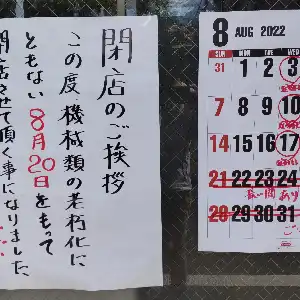 閉店のご挨拶
この度機械類の老朽化に
ともない8月20日をもって
閉店させて頂く事になりました
8 AUG 2022
SUN MON TUE WED
31 1 2 3
7 8 9 10
14 15 16 17
21 22 23 24
長い間 あり
28 29 30 31